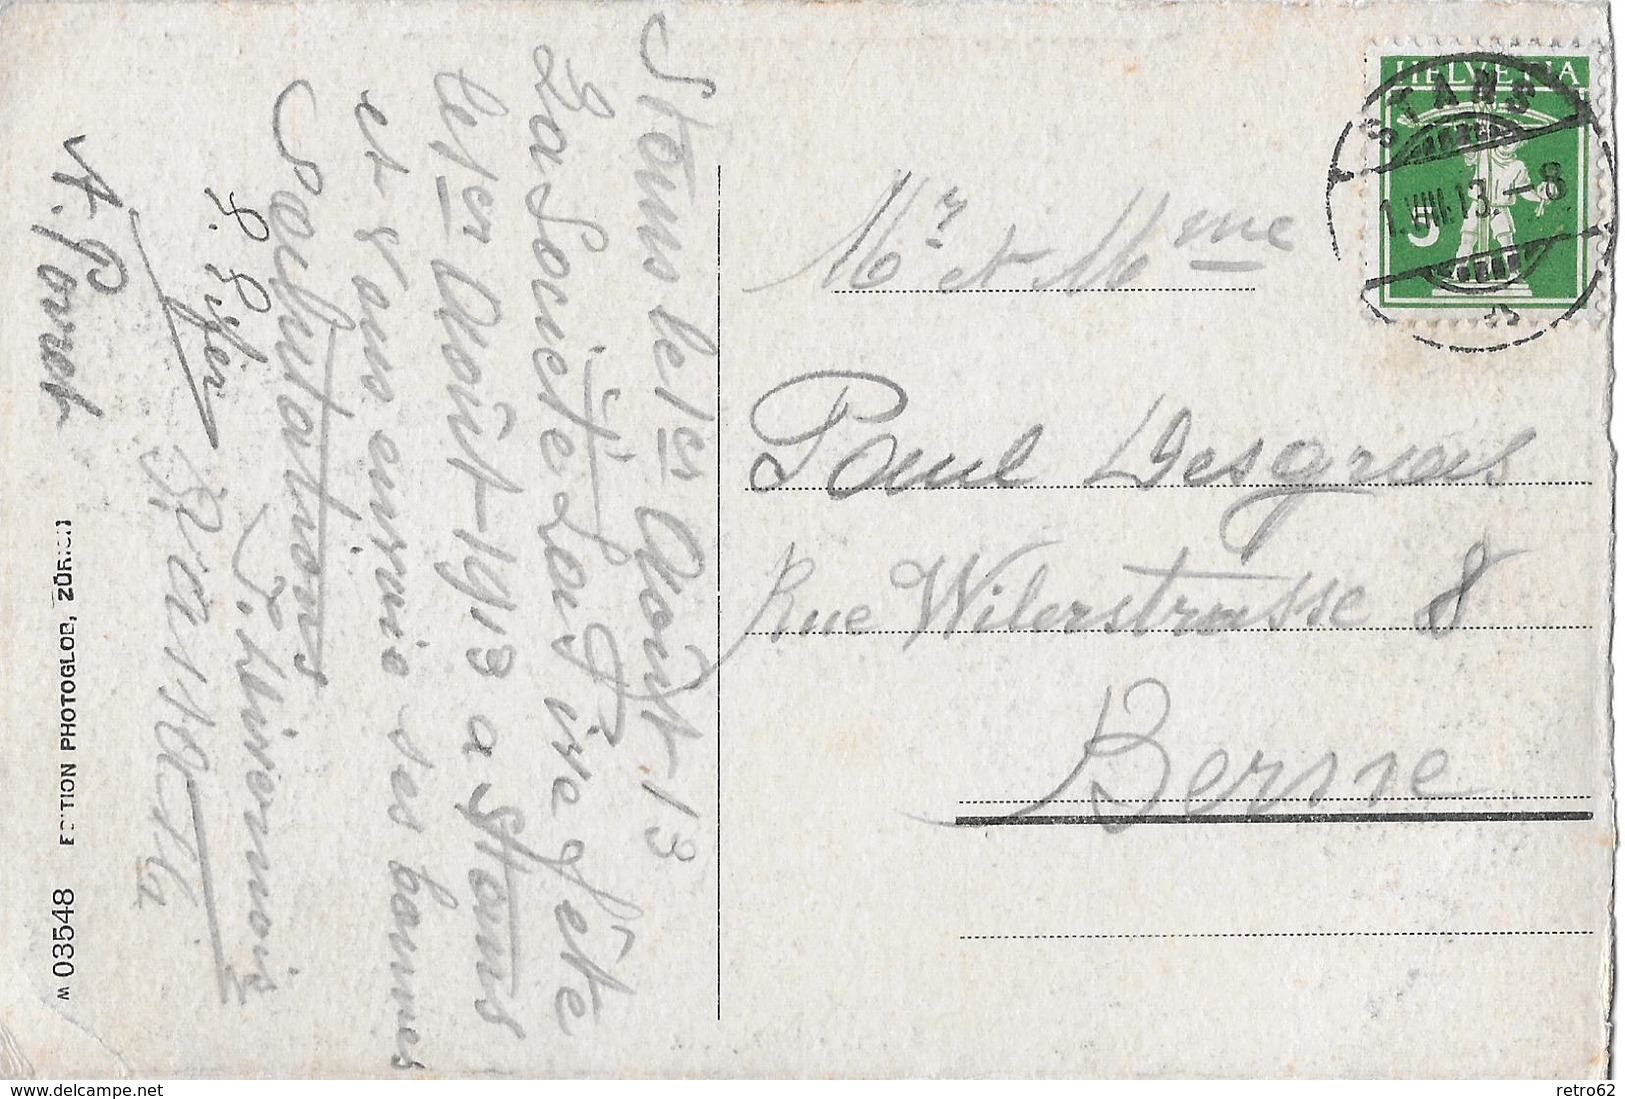 Stans le 1er Août 13
La Société Sang ire fête
le 1er Août 1913 a Stans
et vous envoie ses bonnes
Salutations
A. Porret
M 03548 EDITION PHOTOGLOB, ZÜRICH
HELVETIA
STANS
1.VIII.13.-8
Mr. et Mme
Paul Desgraz
Rue Wilerstrasse 8
Berne
delcampe.net
retro62